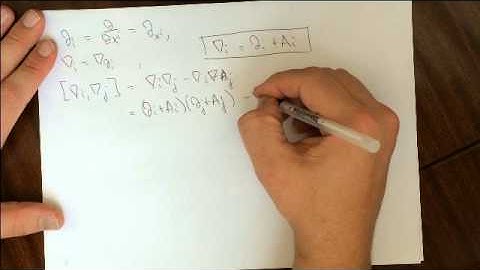 ∂i = ∂/∂xi = ∂xi, ∇i = ∂i + Ai
∇i = ∇∂i,
[∇i, ∇j] = ∇i∇j − ∇i∇Aj
= (∂i + Ai)(∂j + Aj) −